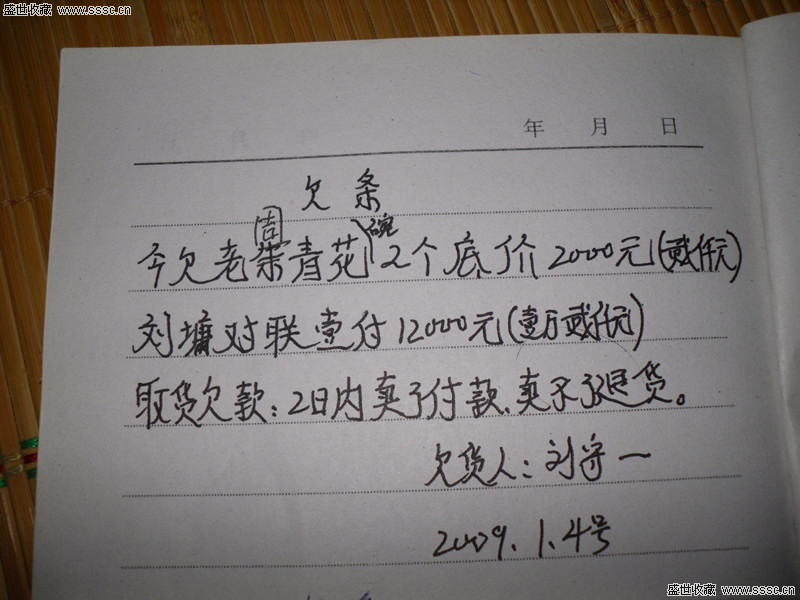 盛世收藏 www.sssc.cn
盛世收藏 www.sssc.cn
年 月 日
欠条
今欠老柴青花碗2个底价2000元(贰仟元)
刘墉对联壹付12000元(壹万贰仟元)
取货欠款:2日内卖了付款、卖不了退货。
欠货人:刘守一
2009.1.4号
盛世收藏 www.sssc.cn
盛世收藏 www.sssc.cn